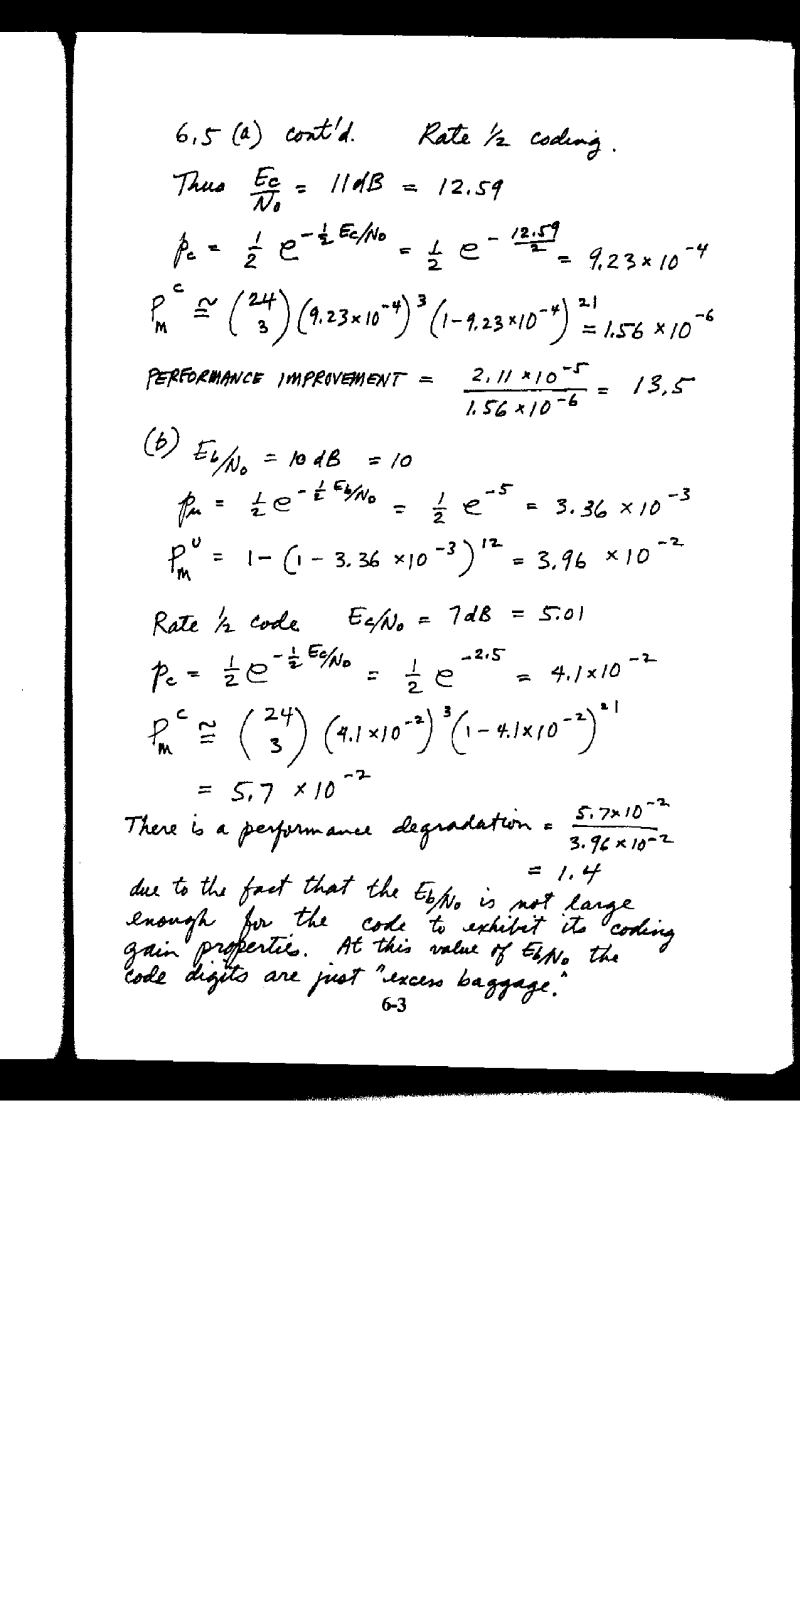 6.5 (a) cont'd. Rate 1/2 coding.
Thus Ec/N₀ = 11 dB = 12.59
p_c = 1/2 e^(-1/2 Ec/N₀) = 1/2 e^(-12.59/2) = 9.23 × 10^-4
P_M^C ≅ (24 3) (9.23×10^-4)^3 (1-9.23×10^-4)^21 = 1.56 × 10^-6
PERFORMANCE IMPROVEMENT = 2.11 × 10^-5 / 1.56 × 10^-6 = 13.5
(b) Eb/N₀ = 10 dB = 10
p_u = 1/2 e^(-1/2 Eb/N₀) = 1/2 e^-5 = 3.36 × 10^-3
P_M^U = 1 - (1 - 3.36 × 10^-3)^12 = 3.96 × 10^-2
Rate 1/2 code Ec/N₀ = 7 dB = 5.01
p_c = 1/2 e^(-1/2 Ec/N₀) = 1/2 e^-2.5 = 4.1 × 10^-2
P_M^C ≅ (24 3) (4.1 × 10^-2)^3 (1 - 4.1 × 10^-2)^21
= 5.7 × 10^-2
There is a performance degradation = 5.7 × 10^-2 / 3.96 × 10^-2
= 1.4
due to the fact that the Eb/N₀ is not large
enough for the code to exhibit its coding
gain properties. At this value of Eb/N₀ the
code digits are just "excess baggage."
6-3